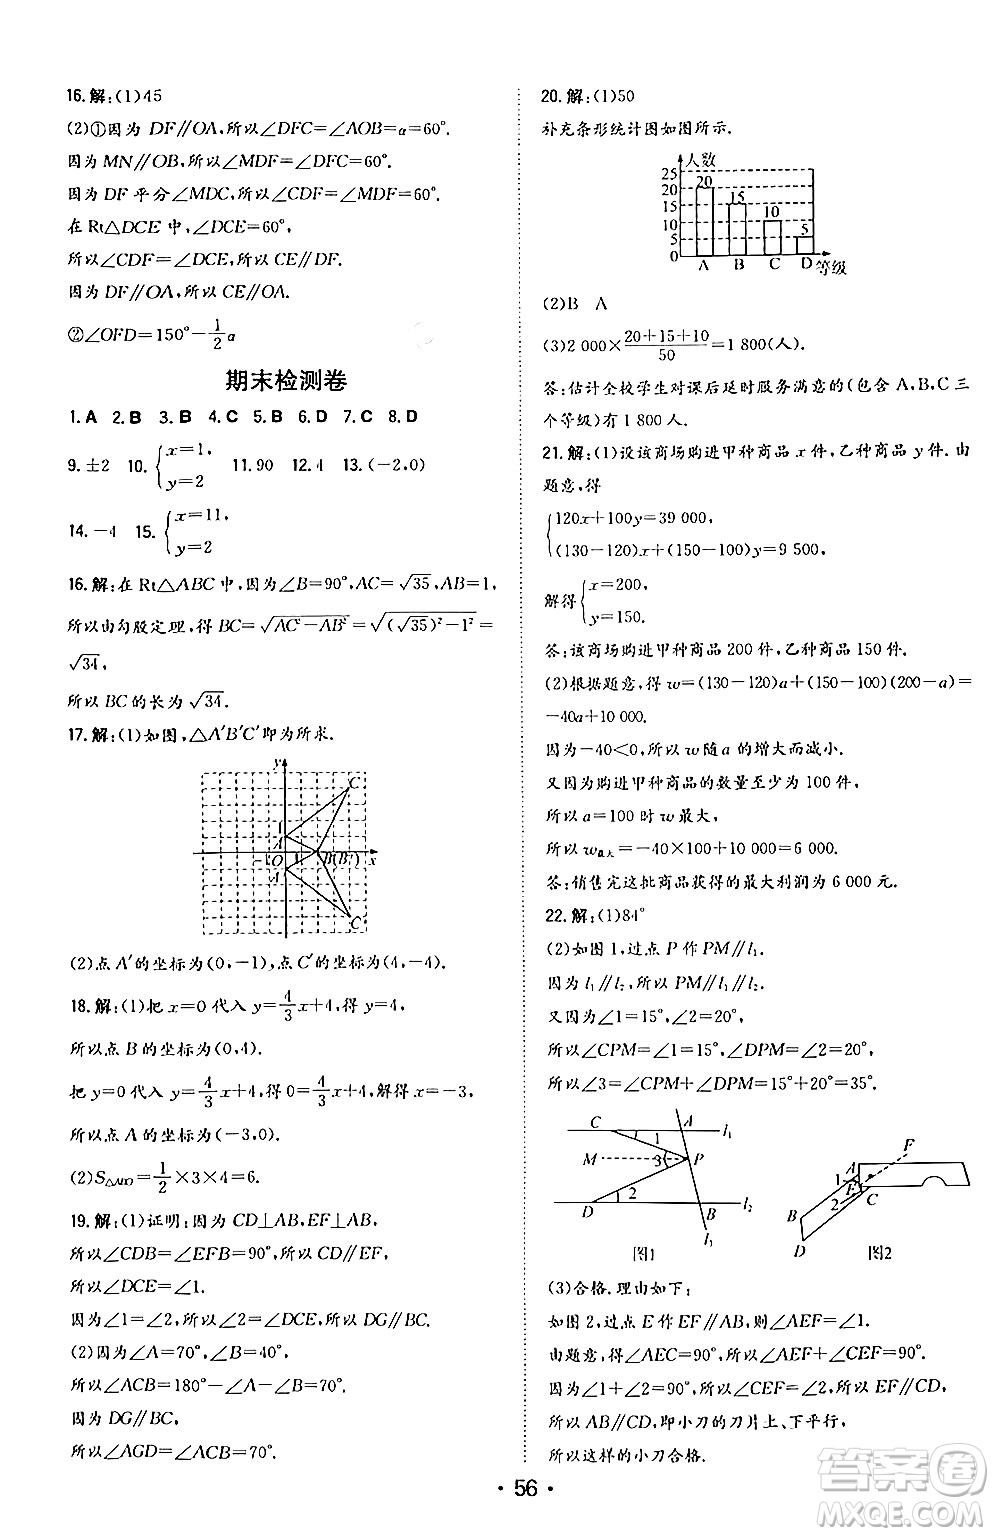 16.解:(1)45
(2)①因为 DF∥OA,所以∠DFC=∠AOB=α=60°.
因为 MN∥OB,所以∠MDF=∠DFC=60°.
因为 DF 平分∠MDC,所以∠CDF=∠MDF=60°.
在 Rt△DCE 中,∠DCE=60°,
所以∠CDF=∠DCE,所以 CE∥DF.
因为 DF∥OA,所以 CE∥OA.
②∠OFD=150°-1/2α
期末检测卷
1.A 2.B 3.B 4.C 5.B 6.D 7.C 8.D
9.±2 10.{x=1, y=2 11.90 12.4 13.(-2,0)
14.-4 15.{x=11, y=2
16.解:在 Rt△ABC 中,因为∠B=90°,AC=√35,AB=1,
所以由勾股定理,得 BC=√(AC²-AB²)=√((√35)²-1²)=
√34,
所以 BC 的长为√34.
17.解:(1)如图,△A'B'C'即为所求.
y
C
1
A
-1 O 1 B(B') x
A'
C'
(2)点 A'的坐标为(0,-1),点 C'的坐标为(4,-4).
18.解:(1)把 x=0 代入 y=4/3x+4,得 y=4,
所以点 B 的坐标为(0,4).
把 y=0 代入 y=4/3x+4,得 0=4/3x+4,解得 x=-3,
所以点 A 的坐标为(-3,0).
(2)S△ABO=1/2×3×4=6.
19.解:(1)证明:因为 CD⊥AB,EF⊥AB,
所以∠CDB=∠EFB=90°,所以 CD∥EF,
所以∠DCE=∠1.
因为∠1=∠2,所以∠2=∠DCE,所以 DG∥BC.
(2)因为∠A=70°,∠B=40°,
所以∠ACB=180°-∠A-∠B=70°.
因为 DG∥BC,
所以∠AGD=∠ACB=70°.
20.解:(1)50
补充条形统计图如图所示.
人数
25
20
15
10
5
0
20
15
10
5
A B C D 等级
(2)B A
(3)2 000×(20+15+10)/50=1 800(人).
答:估计全校学生对课后延时服务满意的(包含 A,B,C 三
个等级)有 1 800 人.
21.解:(1)设该商场购进甲种商品 x 件,乙种商品 y 件.由
题意,得
{120x+100y=39 000,
(130-120)x+(150-100)y=9 500,
解得{x=200,
y=150.
答:该商场购进甲种商品 200 件,乙种商品 150 件.
(2)根据题意,得 w=(130-120)a+(150-100)(200-a)=
-40a+10 000.
因为-40<0,所以 w 随 a 的增大而减小.
又因为购进甲种商品的数量至少为 100 件,
所以 a=100 时 w 最大,
所以 w最大=-40×100+10 000=6 000.
答:销售完这批商品获得的最大利润为 6 000 元.
22.解:(1)84°
(2)如图 1,过点 P 作 PM∥l₁.
因为 l₁∥l₂,所以 PM∥l₁∥l₂.
又因为∠1=15°,∠2=20°,
所以∠CPM=∠1=15°,∠DPM=∠2=20°,
所以∠3=∠CPM+∠DPM=15°+20°=35°.
C A l₁
1
M 3 P
2
D B l₂
l₃
图1
F
A
1
E
2 C
B
D
图2
(3)合格.理由如下:
如图 2,过点 E 作 EF∥AB,则∠AEF=∠1.
由题意,得∠AEC=90°,所以∠AEF+∠CEF=90°.
因为∠1+∠2=90°,所以∠CEF=∠2,所以 EF∥CD,
所以 AB∥CD,即小刀的刀片上、下平行,
所以这样的小刀合格.
· 56 ·
答案圈
MXQE.COM